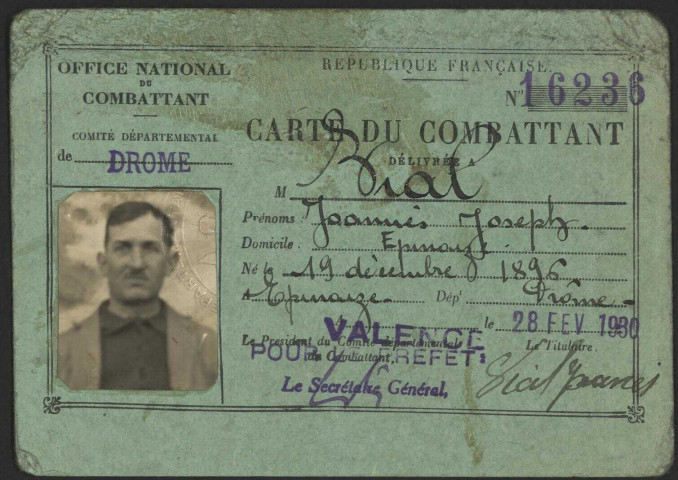 OFFICE NATIONAL
DU
COMBATTANT
COMITÉ DÉPARTEMENTAL
de DROME
RÉPUBLIQUE FRANÇAISE.
N° 16236
CARTE DU COMBATTANT
DÉLIVRÉE A
M Vial
Prénoms : Joannès Joseph.
Domicile : Epinouze.
Né le 19 décembre 1896
à Epinouze Dép' Drôme
VALENCE le 28 FEV 1930
Le Président du Comité départemental
du Combattant,
POUR PREFET :
Le Titulaire.
Le Secrétaire Général,
Vial Joannès